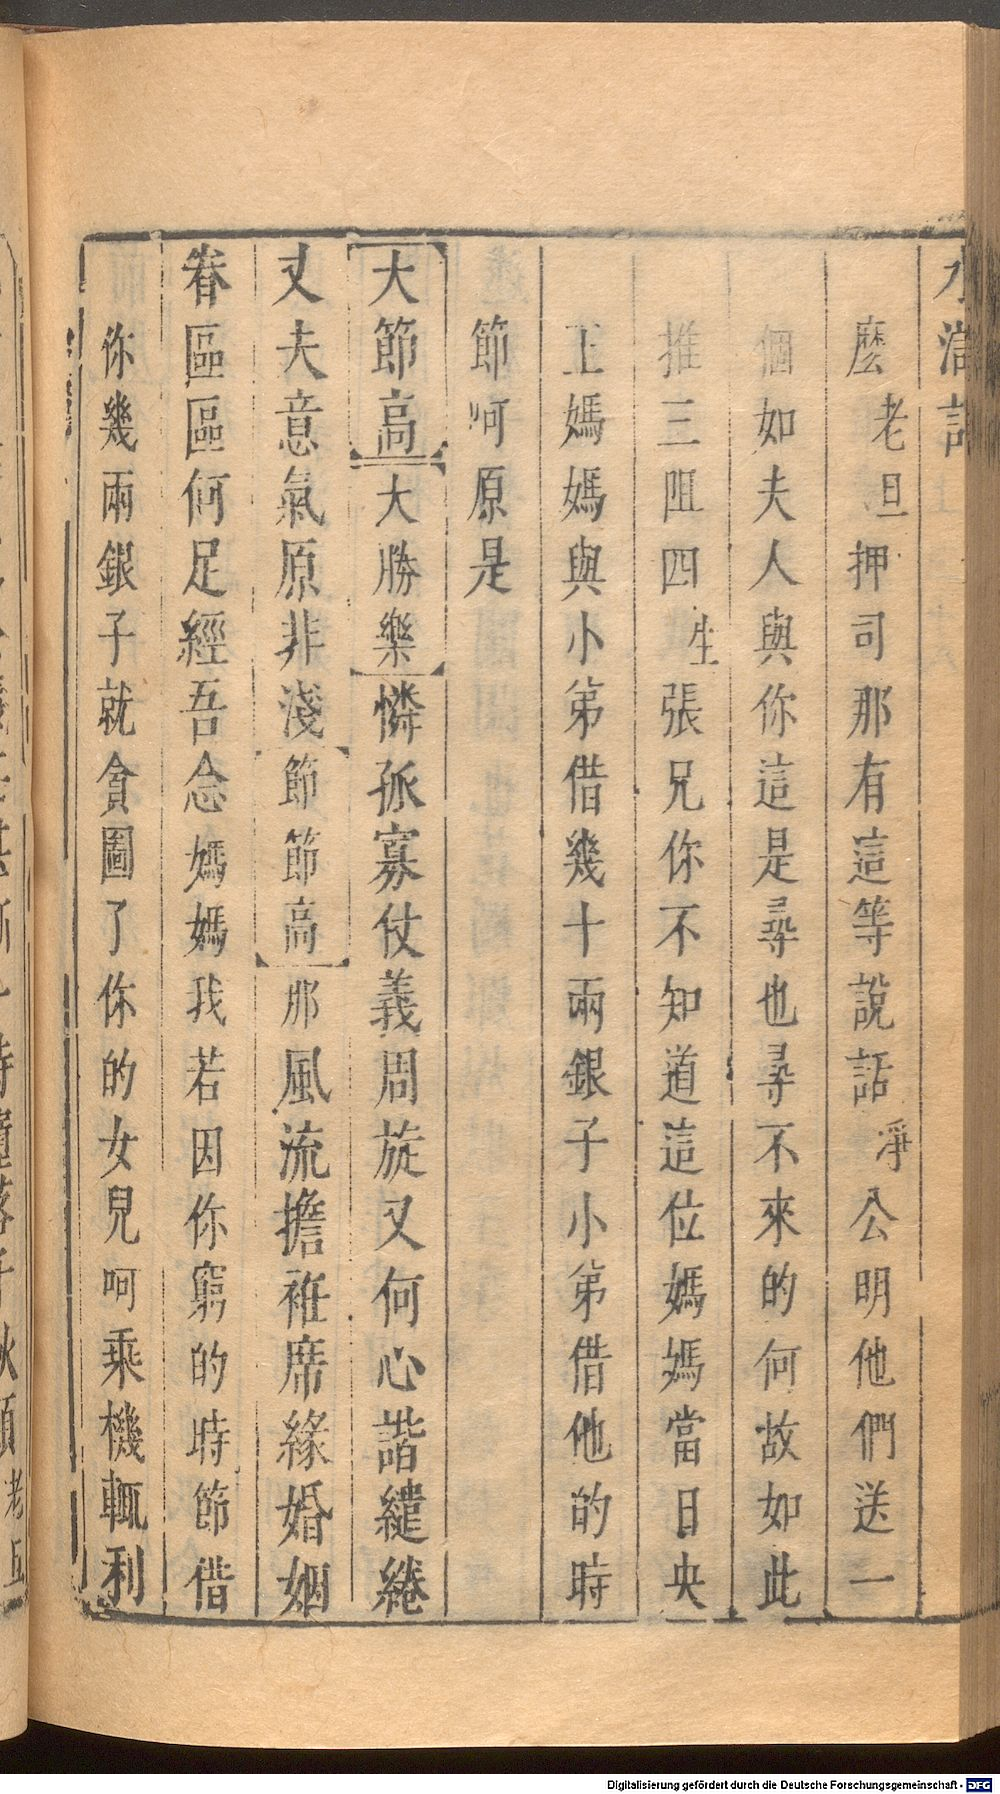 水滸記
麼 老旦 押司那有這等說話 淨 公明他們送一
個如夫人與你這是尋也尋不來的何故如此
推三阻四 生 張兄你不知道這位媽媽當日央
王媽媽與小弟借幾十兩銀子小弟借他的時
節呵原是
大節高 大勝樂 憐孤寡仗義周旋又何心諧繾綣
丈夫意氣原非淺 節節高 那風流擔袵席緣婚姻
眷區區何足經吾念媽媽我若因你窮的時節借
你幾兩銀子就貪圖了你的女兒呵乘機輒利
Digitalisierung gefördert durch die Deutsche Forschungsgemeinschaft - DFG